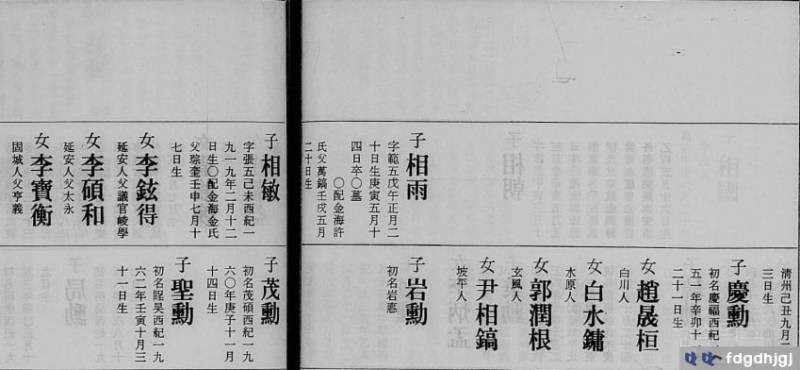 子 相雨
字範五戊午正月二
十日生庚寅五月十
四日卒〇墓
〇配金海許
氏父萬鎬壬戌五月
二十日生
子 相敏
字張五己未西紀一
九一九年二月十二
日生〇配金海金氏
父琮奎壬申七月十
七日生
女 李鉉得
延安人父議官峻學
女 李碩和
延安人父太永
女 李寶衡
固城人父亨義
清州己丑九月
三日生
子 慶勳
初名慶福西紀一九
五一年辛卯十
二十一日生
女 趙晟桓
白川人
女 白水鏞
水原人
女 郭潤根
玄風人
女 尹相鎬
坡平人
子 岩勳
初名岩悳
子 茂勳
初名茂碩西紀一九
六〇年庚子十一月
十四日生
子 聖勳
初名昆吳西紀一九
六二年壬寅十月三
十一日生
fdgdhjgj